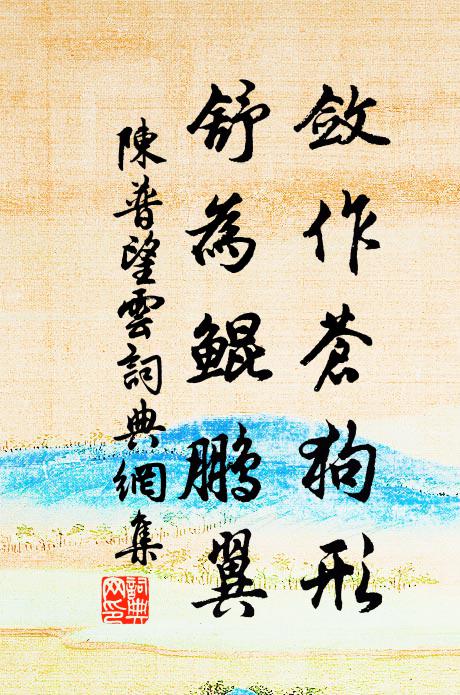 斂作蒼狗形
舒為鯤鵬翼
陳普望雲詞典網集